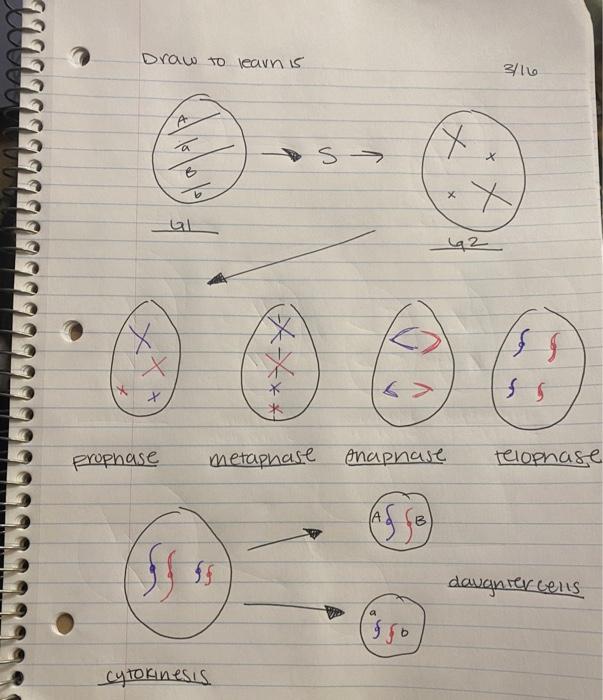 Draw to learn 15
3/16
A
a
B
b
→ S →
G1
G2
prophase
metaphase
anaphase
telophase
A B
daughter cells
a
b
cytokinesis